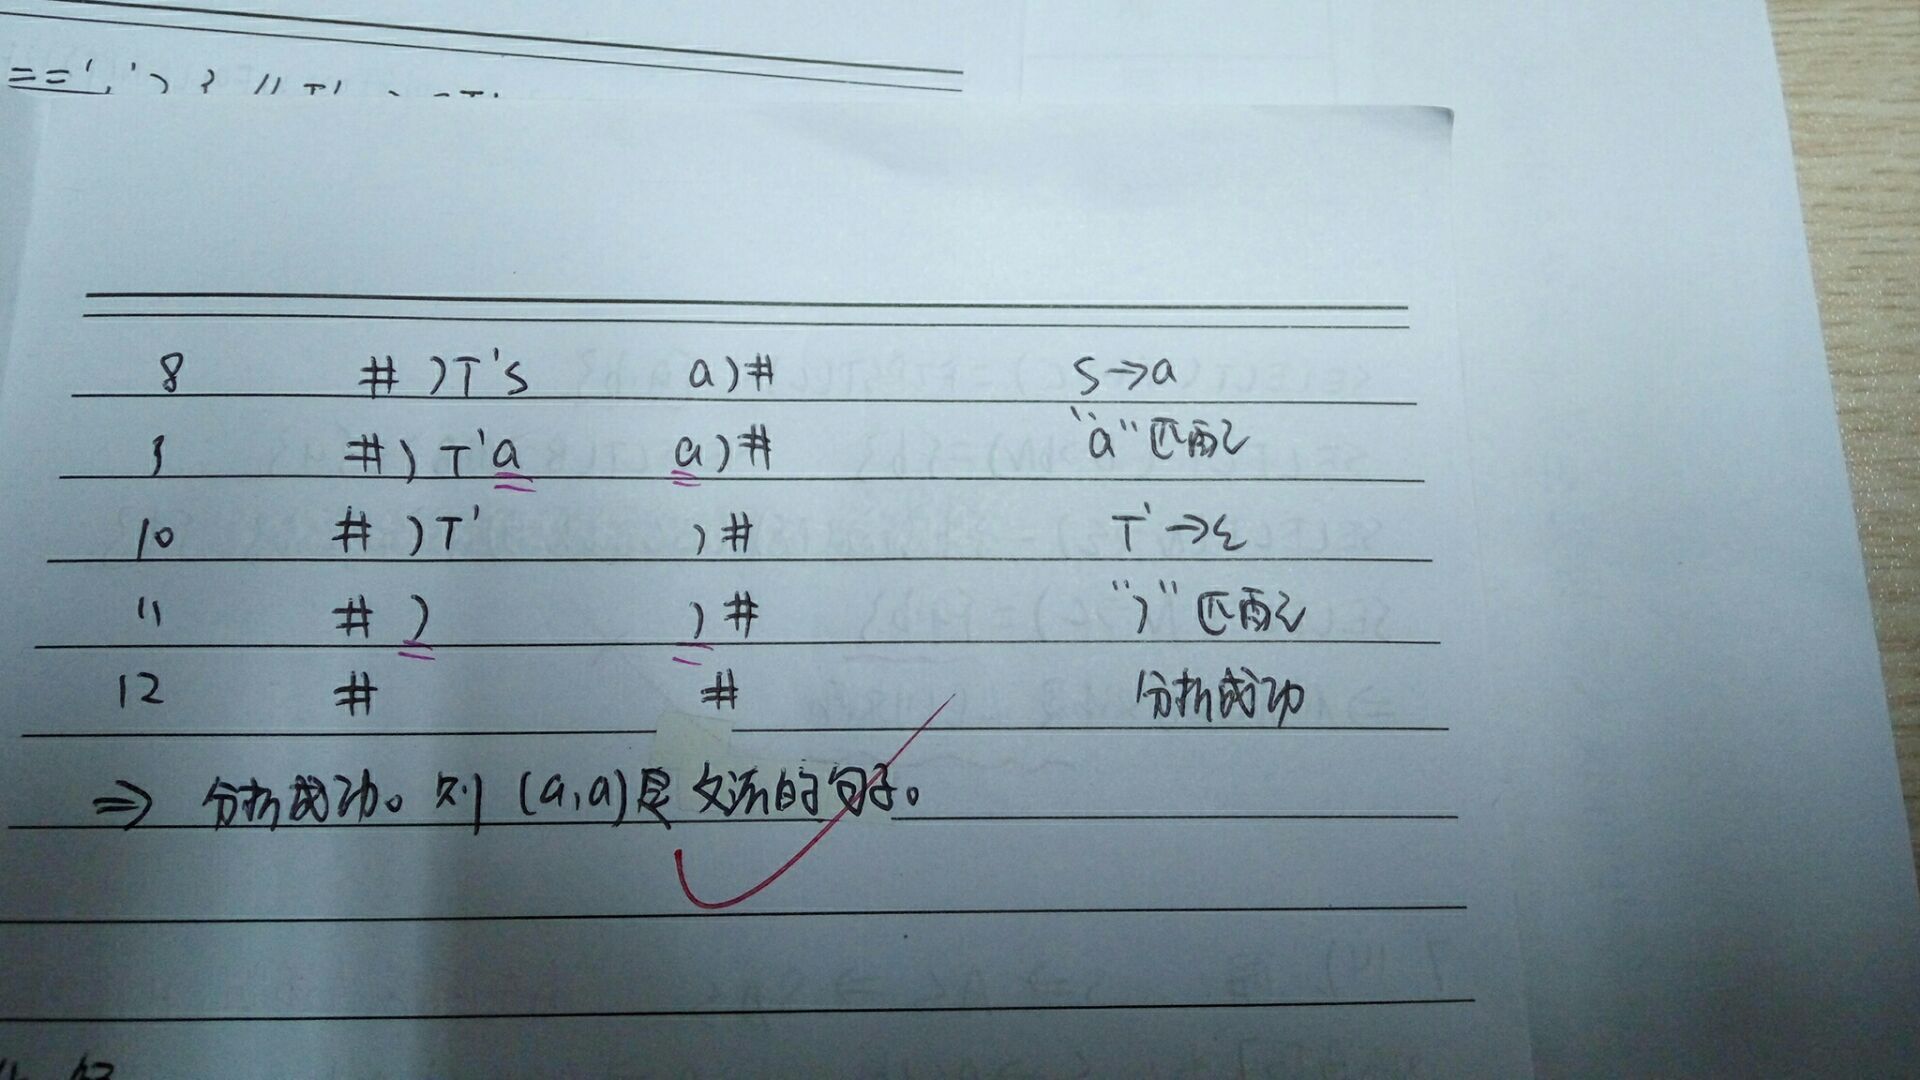 8 #)T's a)# S→a
9 #)T'a a)# "a"匹配
10 #)T' )# T'→ε
11 #) )# ")"匹配
12 # # 分析成功
⇒ 分析成功。则(a,a)是文法的句子。